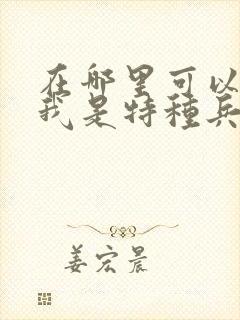 在哪里可以
我是特種兵
姜宏晨